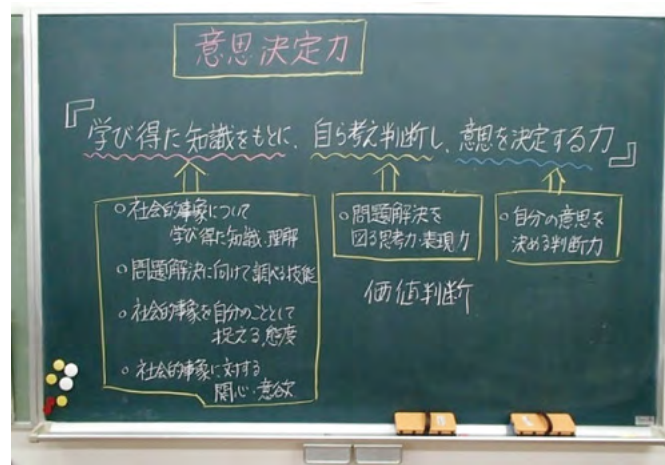 意思決定力
『学び得た知識をもとに、自ら考え判断し、意思を決定する力』
○社会的事象について
学び得た知識・理解
○問題解決に向けて調べる技能
○社会的事象を自分のこととして
捉える態度
○社会的事象に対する
関心・意欲
○問題解決を
図る思考力・表現力
価値判断
○自分の意思を
決める判断力